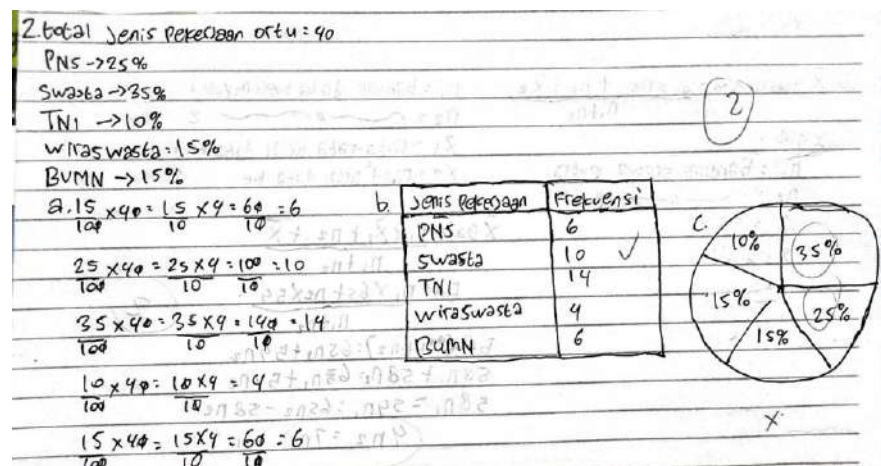 2. total Jenis Pekerjaan ortu : 40
PNS -> 25%
Swasta -> 35%
TNI -> 10%
wiraswasta : 15%
BUMN -> 15%
2
a. 15/100 x 40 = 15 x 4/10 = 60/10 = 6
25/100 x 40 = 25 x 4/10 = 100/10 = 10
35/100 x 40 = 35 x 4/10 = 140/10 = 14
10/100 x 40 = 10 x 4/10 = 4
15/100 x 40 = 15 x 4/10 = 60/10 = 6
b.
Jenis Pekerjaan Frekuensi
PNS 6
Swasta 10 ✓
TNI 14
wiraswasta 4
BUMN 6
c.
10% 35%
15% 25%
15%
x